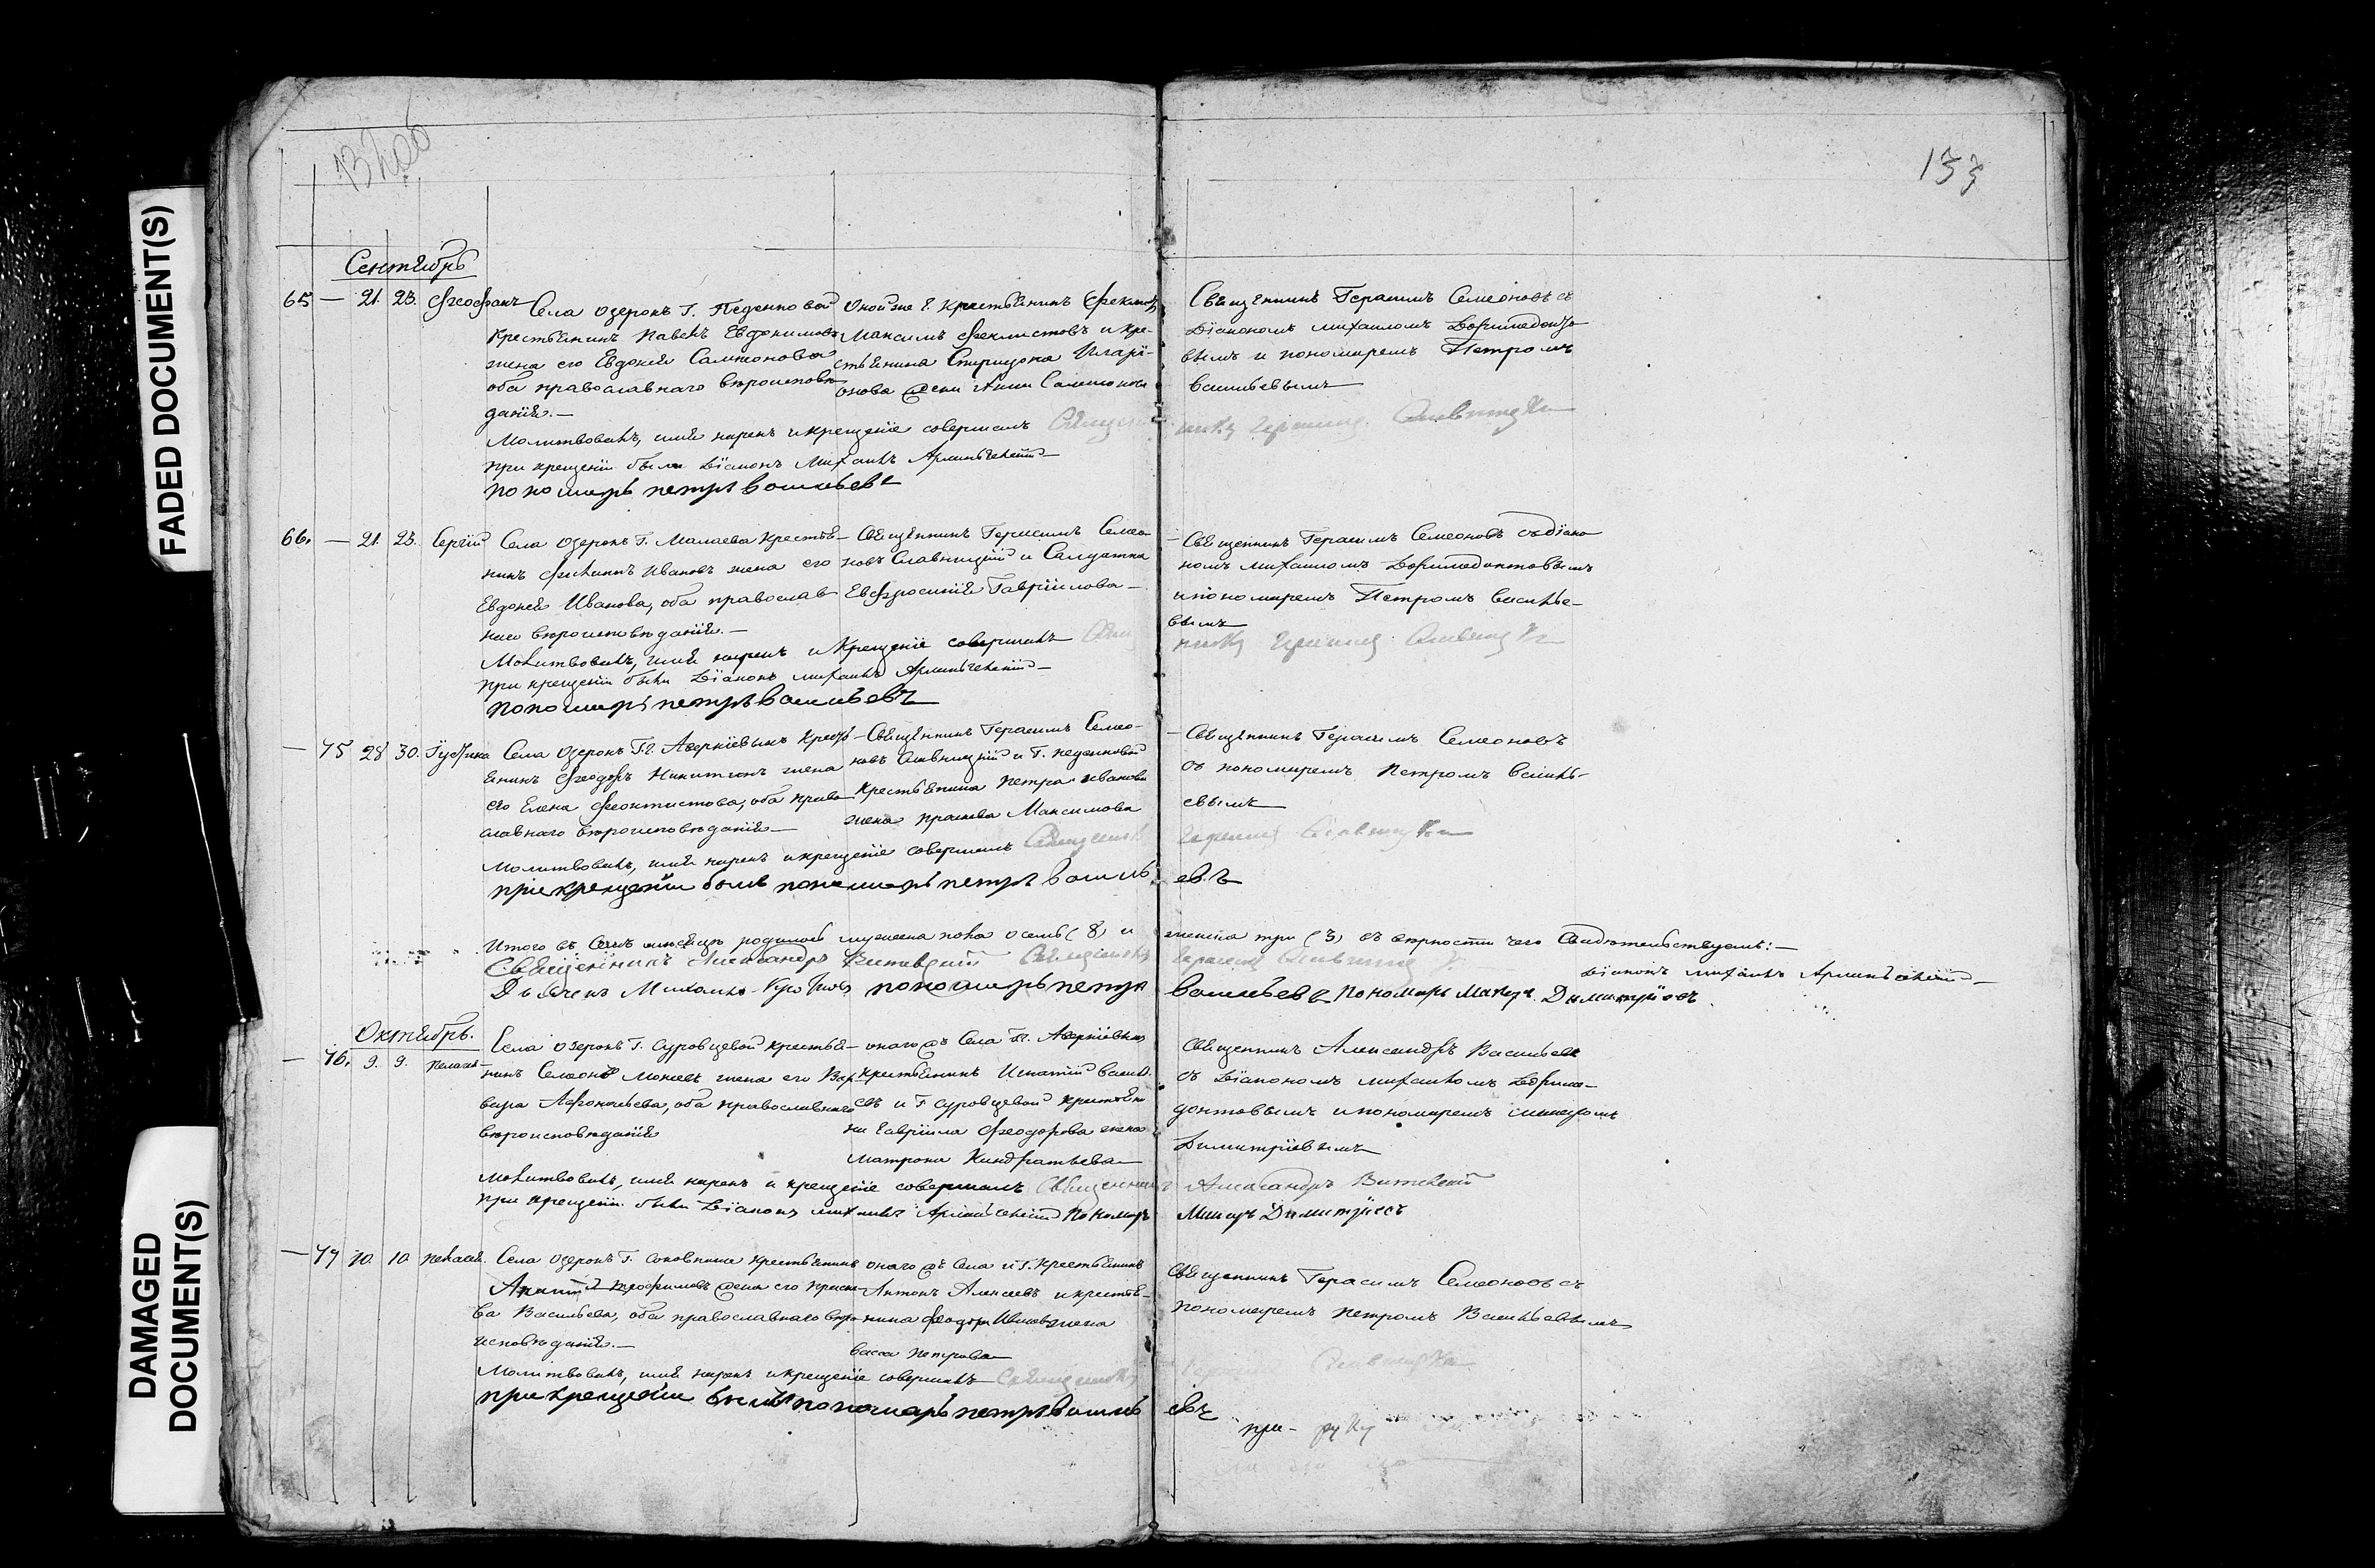 FADED DOCUMENT(S)
DAMAGED DOCUMENT(S)
132об
133
Сентябрь
65 — 21. 23. Феофанъ Села Озерокъ Г. Педенковой
Крестьянинъ Павелъ Евдокимовъ
жена его Евдокія Сампсонова
оба православнаго вѣроисповѣ
данія.—
Онойже Г. Крестьянинъ
Максимъ Феклистовъ и кре-
стьянина Спиридона Иларі-
онова жена Анна
Священникъ Герасимъ Семеоновъ съ
Діакономъ Михаиломъ Дормидонто
вымъ и пономаремъ Петромъ
Васильевымъ
Молитвовалъ, имя нарекъ и крещеніе совершалъ Священ
никъ Герасимъ Славницкій
при крещеніи были Діаконъ Михаилъ
пономарь петръ васильевъ
66. — 21. 23. Сергій Села Озерокъ Г. Малаева Крестья-
нинъ Филиппъ Ивановъ жена его
Евдокія Иванова, оба православ
наго вѣроисповѣданія.—
Священникъ Герасимъ Семео
новъ Славницкій и Салдатка
Евфросинія Гавріилова—
Священникъ Герасимъ Семеоновъ съ Діако
номъ Михаиломъ Дормидонтовымъ
и пономаремъ Петромъ Василье-
вымъ
Молитвовалъ, имя нарекъ и Крещеніе совершалъ Свящ
никъ Герасимъ Славницкій
при крещеніи были Діаконъ Михаилъ
пономарь петръ васильевъ
— 75 28 30. Села Озерокъ Гг. Аверкіевыхъ Кресть
янинъ Феодоръ Никитинъ жена
его Елена Феоктистова, оба право
славнаго вѣроисповѣданія—
Священникъ Герасимъ Семео-
новъ Славницкій и Г. Педенковой
Крестьянина Петра Иванова
жена Прасковья Максимова
Священникъ Герасимъ Семеоновъ
съ пономаремъ Петромъ Василь-
евымъ
Молитвовалъ, имя нарекъ и крещеніе совершалъ Священник
Герасимъ Славницкій
при крещеніи былъ пономарь петръ василь
евъ
Итого въ Семъ мѣсяцѣ родилось мужеска пола осемь (8) и женска три (3) въ вѣрности чего Свидѣтельствуемъ:—
Священникъ Александръ Витевскій Священникъ Герасимъ Славницкій
Діаконъ Михаилъ
Дьячекъ Михаилъ пономарь петръ васильевъ Пономарь Макаръ Димитріевъ
Октябрь.
— 76. 9. 9. Пелагія Села Озерокъ Г. Суровцевой крестья-
нинъ Семеонъ Моисеевъ жена его Вар-
вара Афонасьева, оба православнаго
вѣроисповѣданія
онагожъ Села Гг. Аверкіевыхъ
Крестьянинъ Игнатій Василь
евъ и Г. Суровцевой крестьяни
на Гавріила Феодорова жена
Матрона Киндратьева
Священникъ Александръ Васильевъ
съ Діакономъ Михаиломъ Дорми-
донтовымъ и пономаремъ Макаромъ
Димитріевымъ
Молитвовалъ, имя нарекъ и крещеніе совершалъ Священникъ Александръ Витевскій
при крещеніи были Діаконъ Михаилъ Пономарь Макаръ Димитріевъ
— 77 10. 10 Пелагія. Села Озерокъ Г. Соковнина Крестьянинъ
Трофимовъ жена его Праско-
ва Васильева, оба православнаго вѣро
исповѣданія.—
онагожъ Села и Г. Крестьянинъ
Антонъ Алексеевъ и крестья-
нина Феодора Иванова жена
Васса Петрова
Священникъ Герасимъ Семеоновъ съ
пономаремъ Петромъ Васильевымъ
Молитвовалъ, имя нарекъ и крещеніе совершалъ Священникъ
Славницкій
при крещеніи былъ пономарь петръ василь
евъ